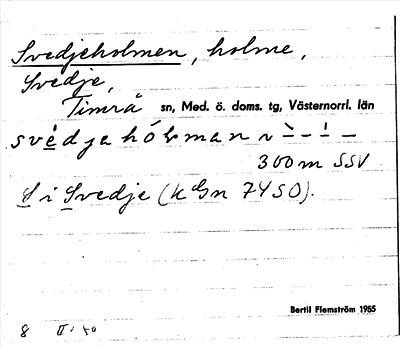 Svedjeholmen, holme,
Svedje,
Timrå sn, Med. ö. doms. tg, Västernorrl. län
300 m SSV
S i Svedje (k Gn 7450).
Bertil Flemström 1955
8 II: 50